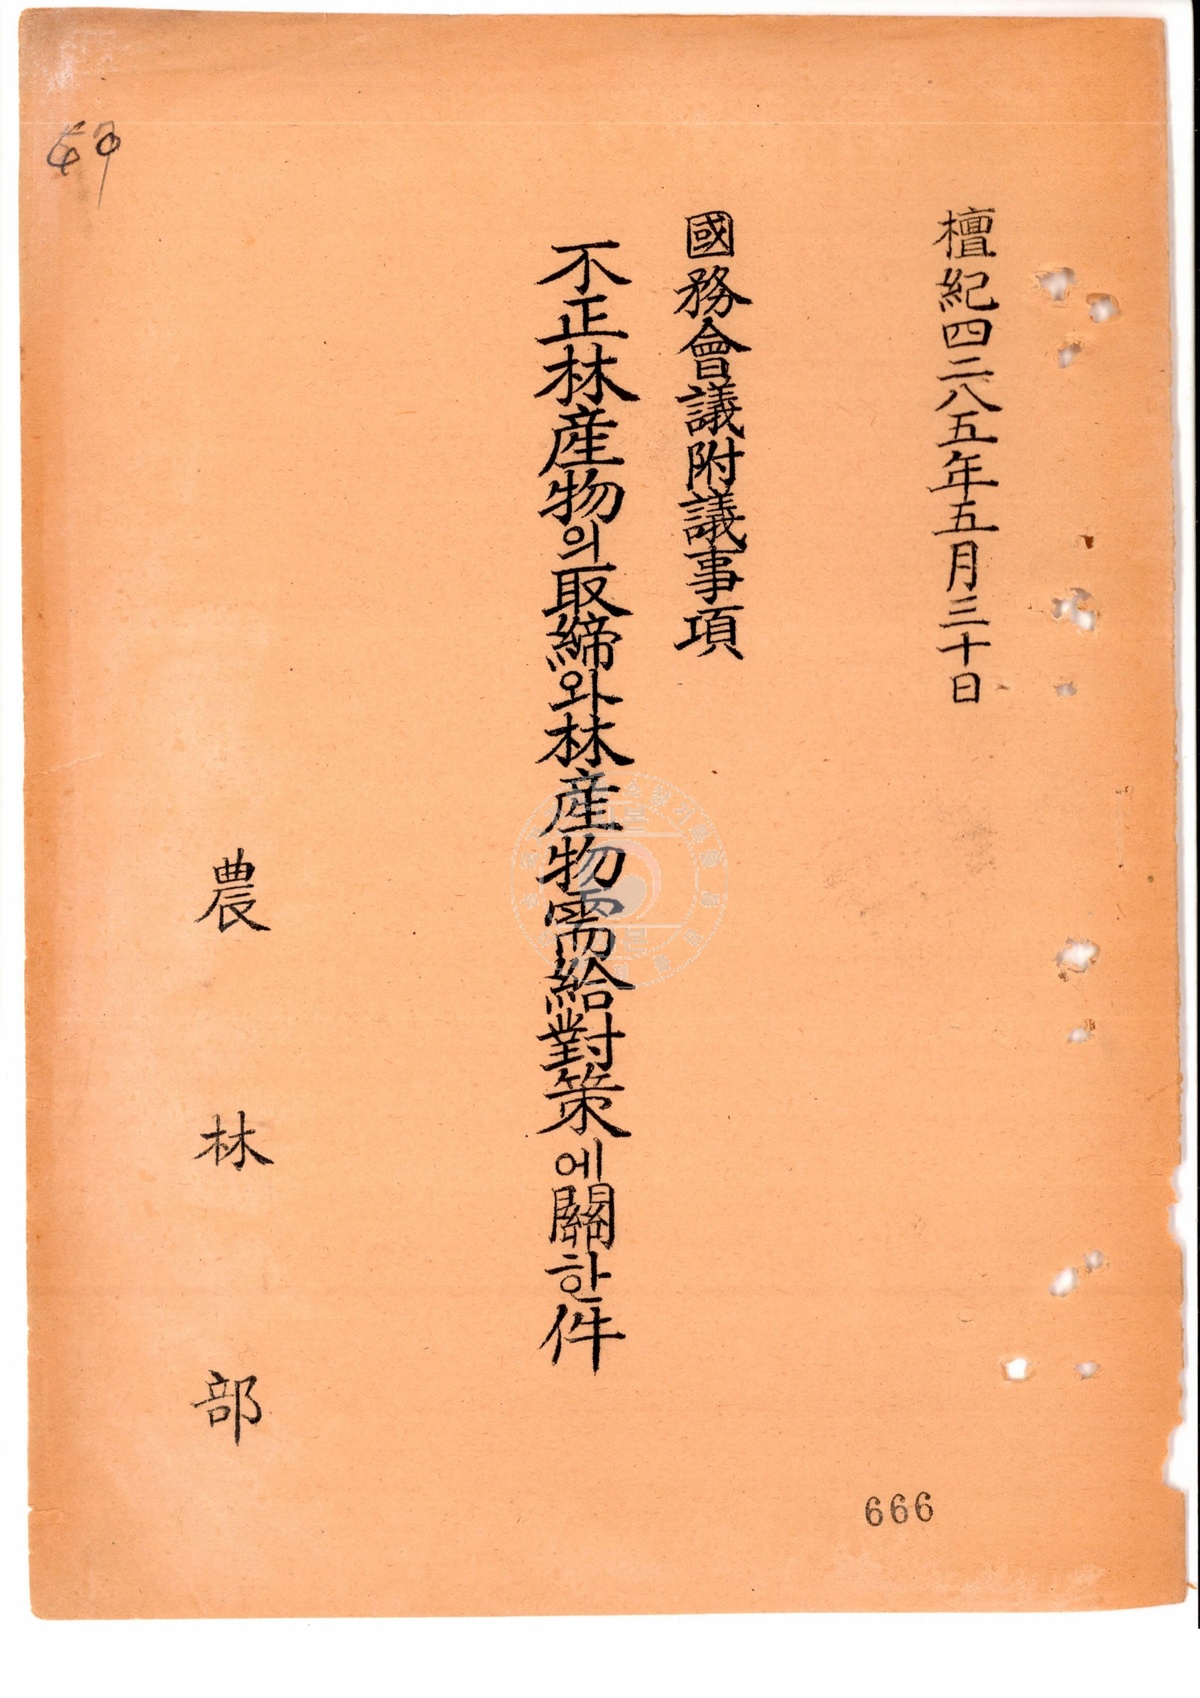 檀紀四二八五年五月三十日
國務會議附議事項
不正林産物의取締와林産物需給對策에關한件
農林部
666